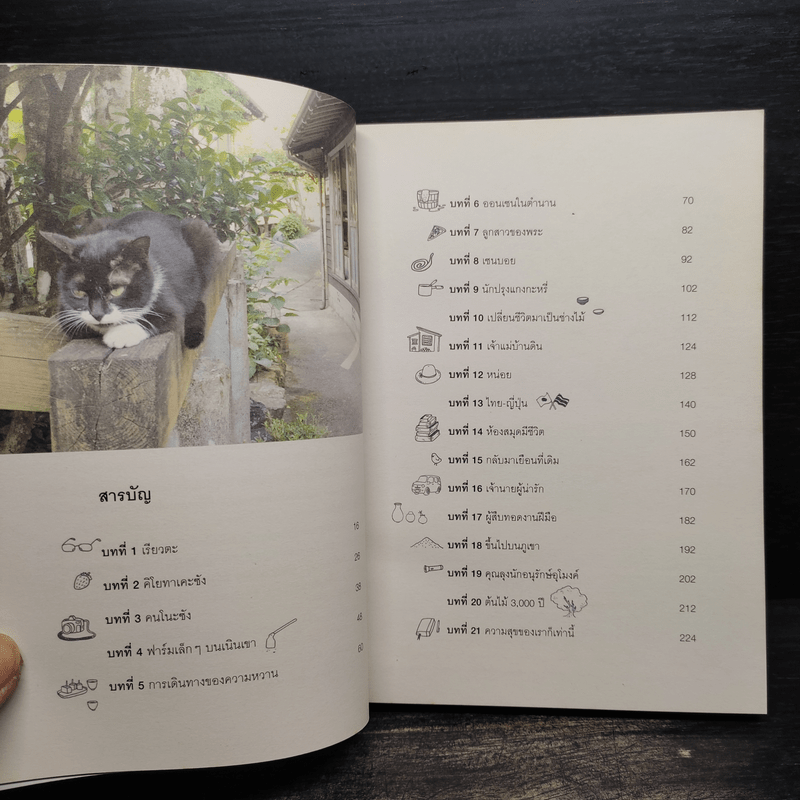 สารบัญ
16
บทที่ 1 เรียวตะ
26
บทที่ 2 คิโยทาเคะซัง
38
บทที่ 3 คนโนะซัง
46
บทที่ 4 ฟาร์มเล็กๆ บนเนินเขา
60
บทที่ 5 การเดินทางของความหวาน
บทที่ 6 ออนเซนในตำนาน 70
บทที่ 7 ลูกสาวของพระ 82
บทที่ 8 เซนบอย 92
บทที่ 9 นักปรุงแกงกะหรี่ 102
บทที่ 10 เปลี่ยนชีวิตมาเป็นช่างไม้ 112
บทที่ 11 เจ้าแม่บ้านดิน 124
บทที่ 12 หน่อย 128
บทที่ 13 ไทย-ญี่ปุ่น 140
บทที่ 14 ห้องสมุดมีชีวิต 150
บทที่ 15 กลับมาเยือนที่เดิม 162
บทที่ 16 เจ้านายผู้น่ารัก 170
บทที่ 17 ผู้สืบทอดงานฝีมือ 182
บทที่ 18 ขึ้นไปบนภูเขา 192
บทที่ 19 คุณลุงนักอนุรักษ์อุโมงค์ 202
บทที่ 20 ต้นไม้ 3,000 ปี 212
บทที่ 21 ความสุขของเราก็เท่านี้ 224